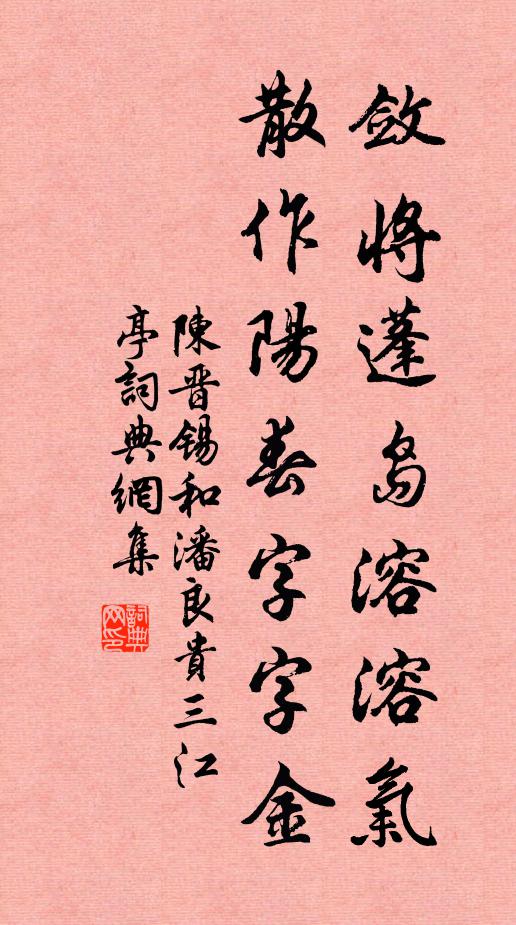 斂將蓬島溶溶氣
散作陽春字字金
陳晋錫和潘良貴三江
亭詞典網集
詞典
网印